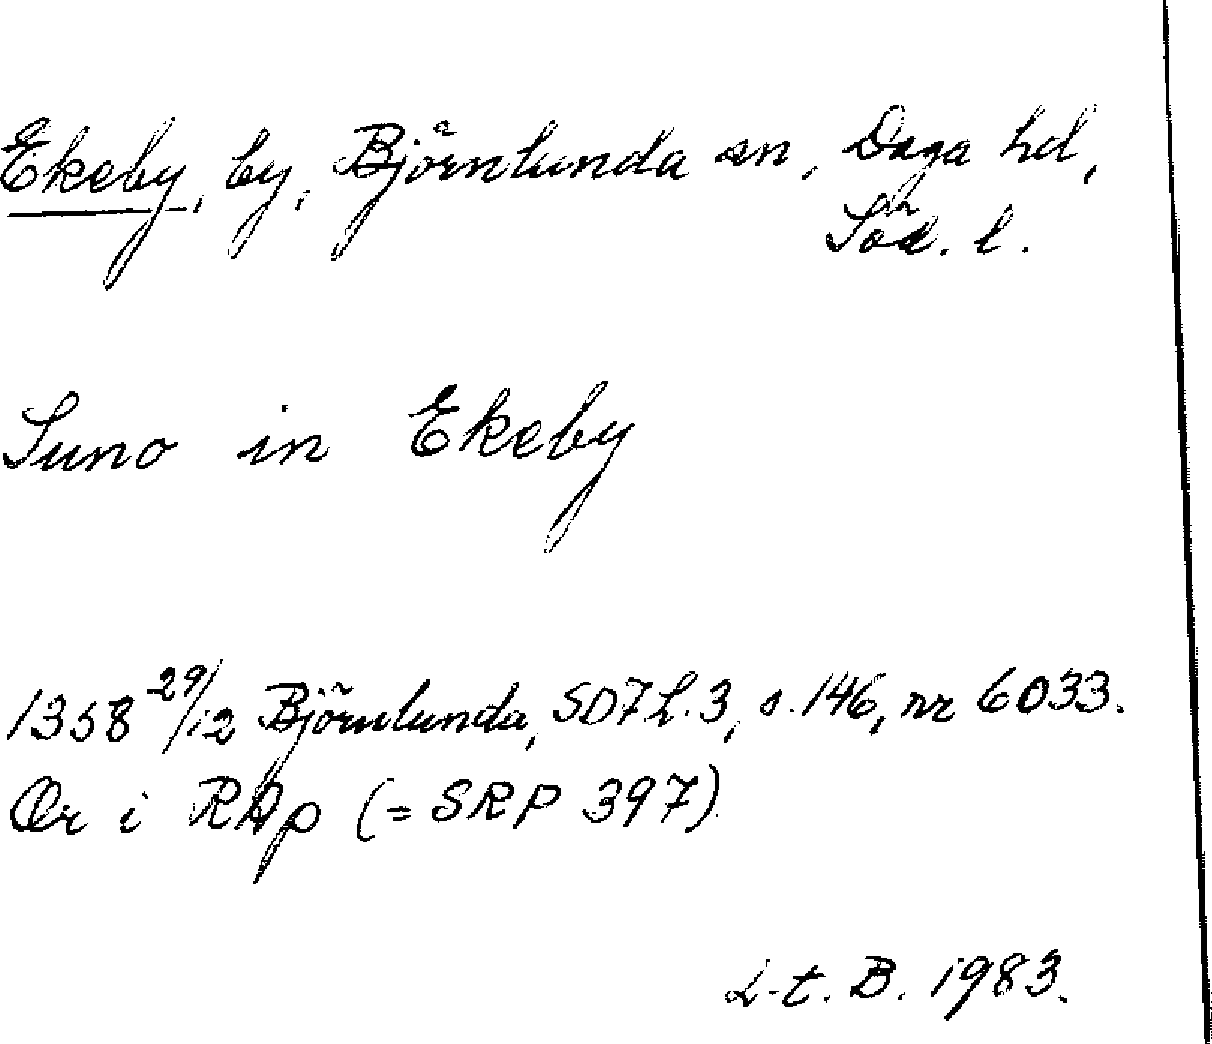 Ekeby, by, Björnlunda sn, Daga hd,
Söd. l.
Suno in Ekeby
1358 29/12 Björnlunda, SD7 h.3, s. 146, nr 6033.
Or i RAp (= SRP 397)
L-t. B. 1983.